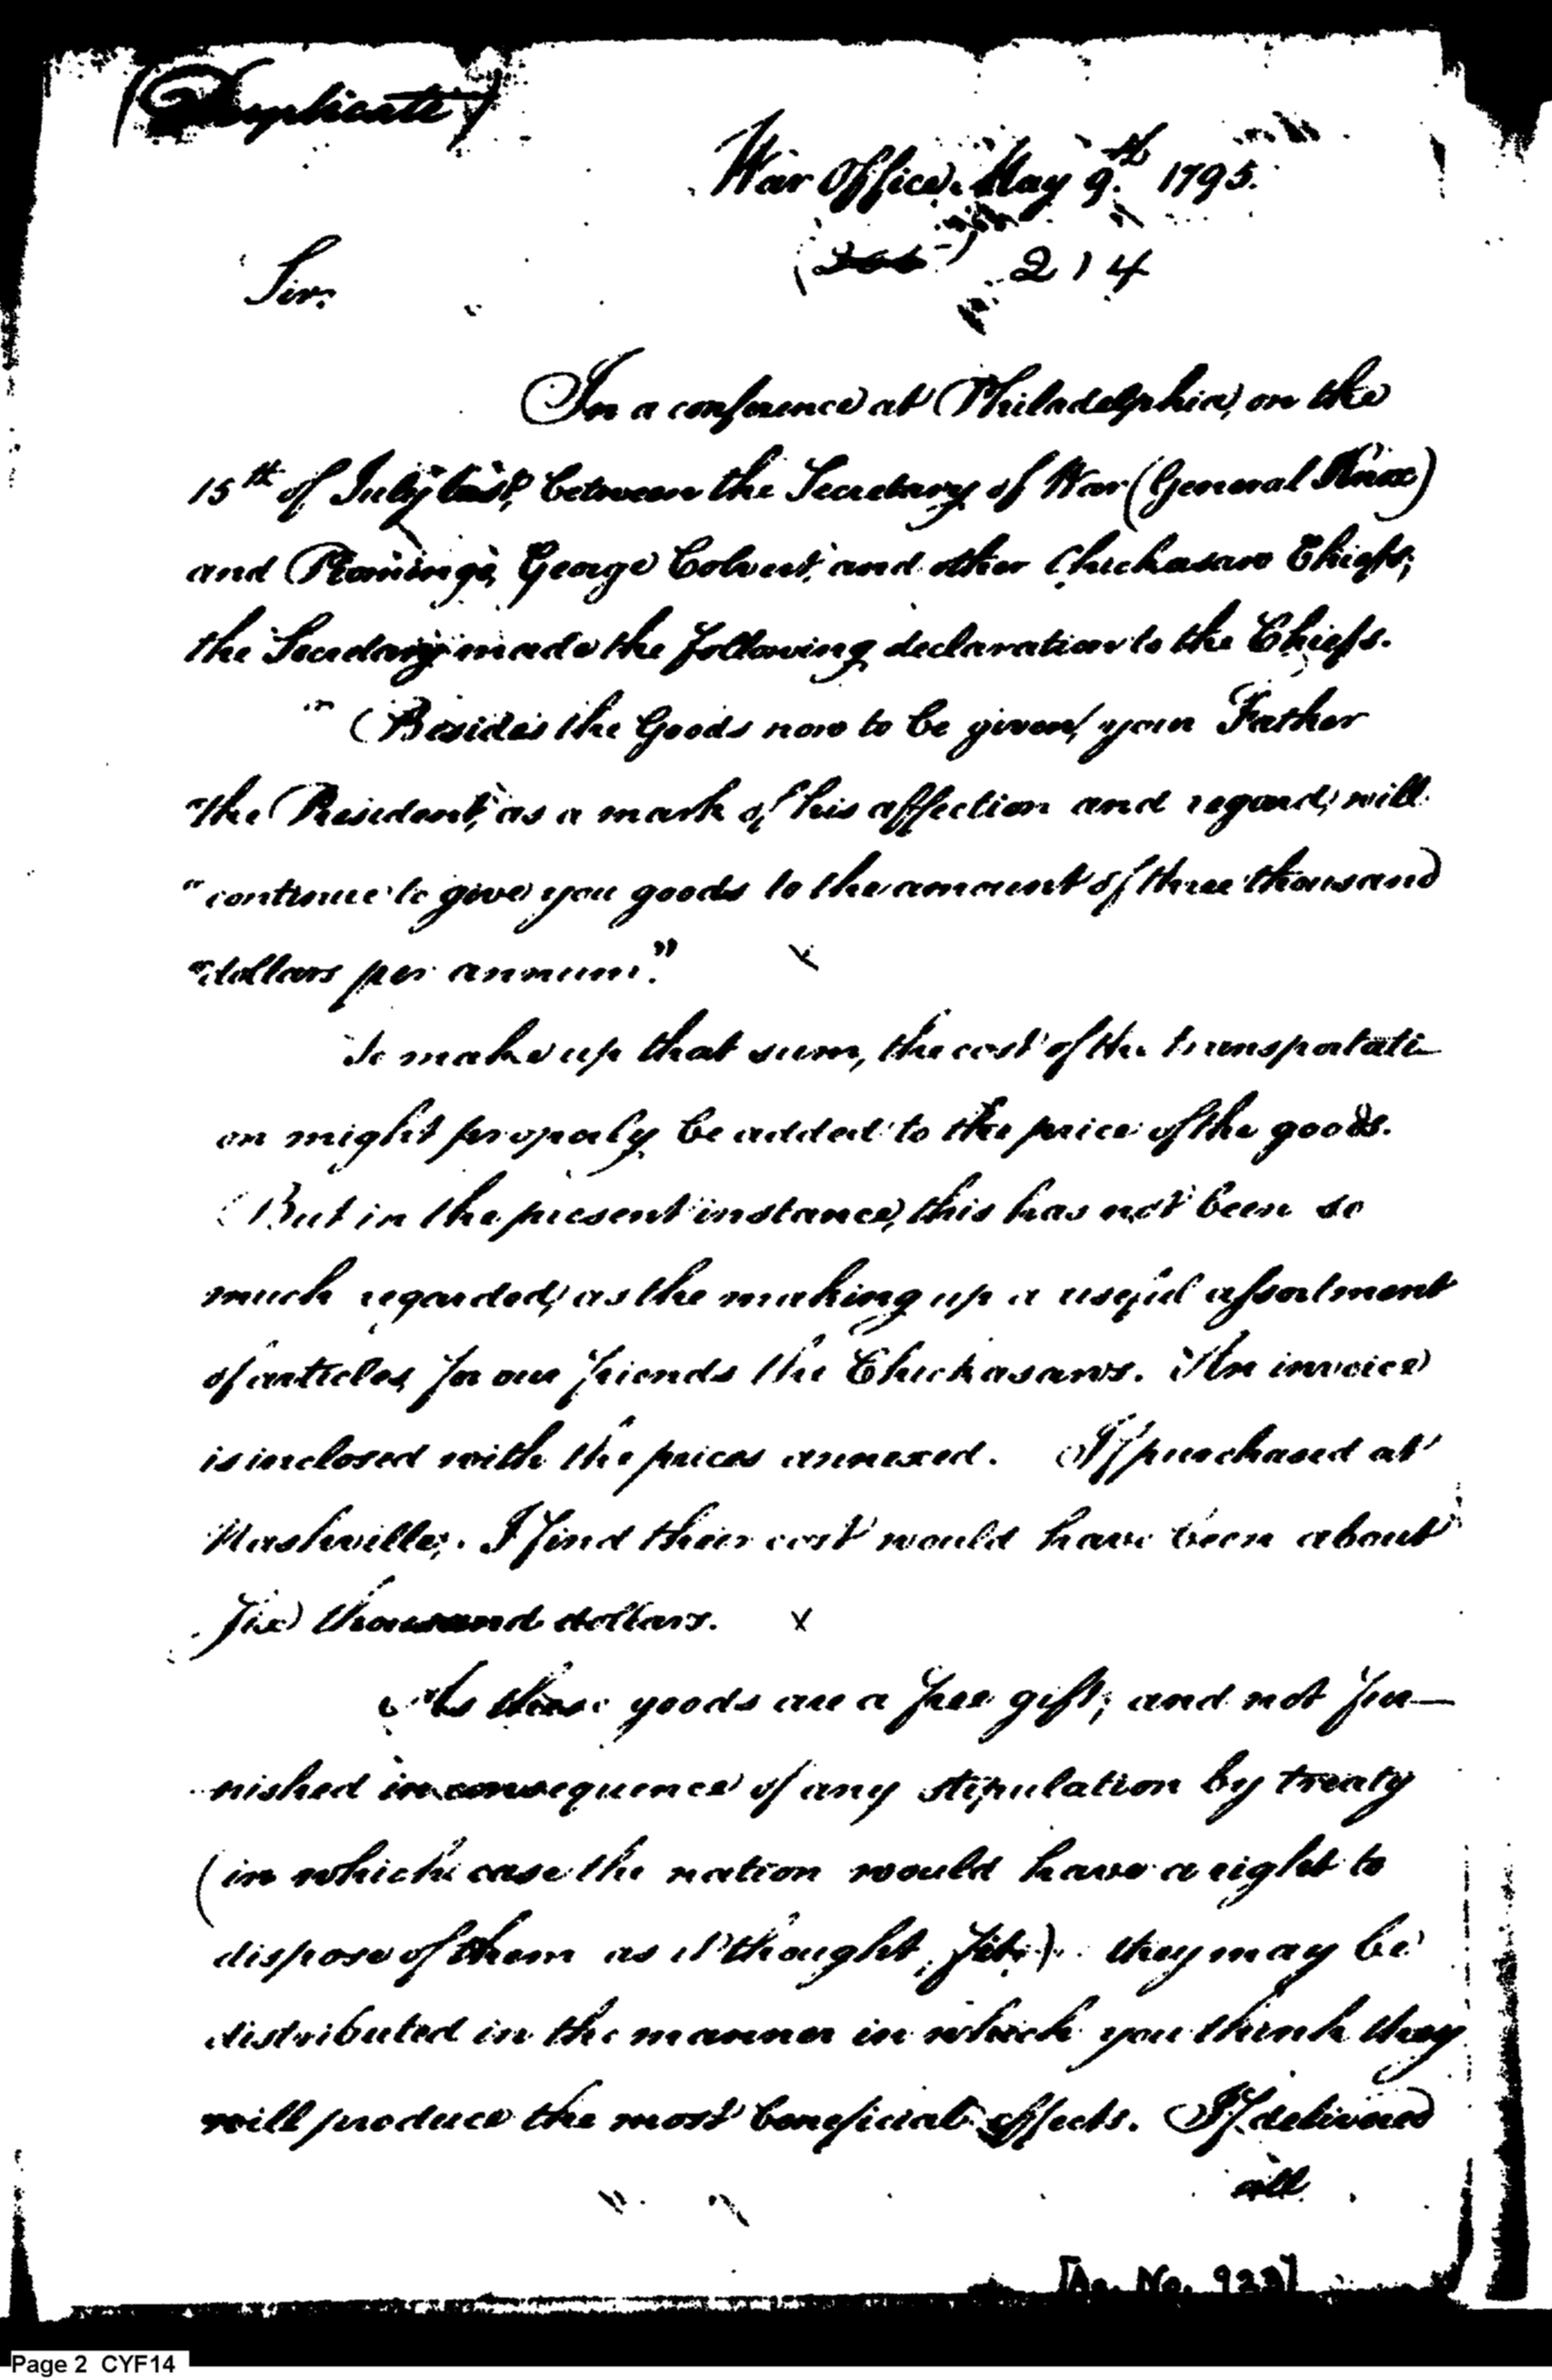 (Duplicate)
War Office, May 9th 1795.
214
Sir:
In a conference at Philadelphia, on the
15th of July last, between the Secretary of War (General Knox)
and Piomingo, George Colvert, and other Chickasaw Chiefs;
the Secretary made the following declaration to the Chiefs.
"Besides the Goods now to be given, your Father
"the President, as a mark of his affection and regard, will
"continue to give you goods to the amount of three thousand
"dollars per annum."
To make up that sum, the cost of the transportati
on might properly be added to the price of the goods.
But in the present instance, this has not been so
much regarded, as the making up a useful assortment
of articles for our friends the Chickasaws. An invoice
is inclosed with the prices annexed. If purchased at
Nashville, I find their cost would have been about
six thousand dollars. x
As these goods are a free gift, and not fur—
nished in consequence of any stipulation by treaty
(in which case the nation would have a right to
dispose of them as it thought fit) they may be
distributed in the manner in which you think they
will produce the most beneficial effects. If delivered
all
[Ac. No. 933]
Page 2 CYF14